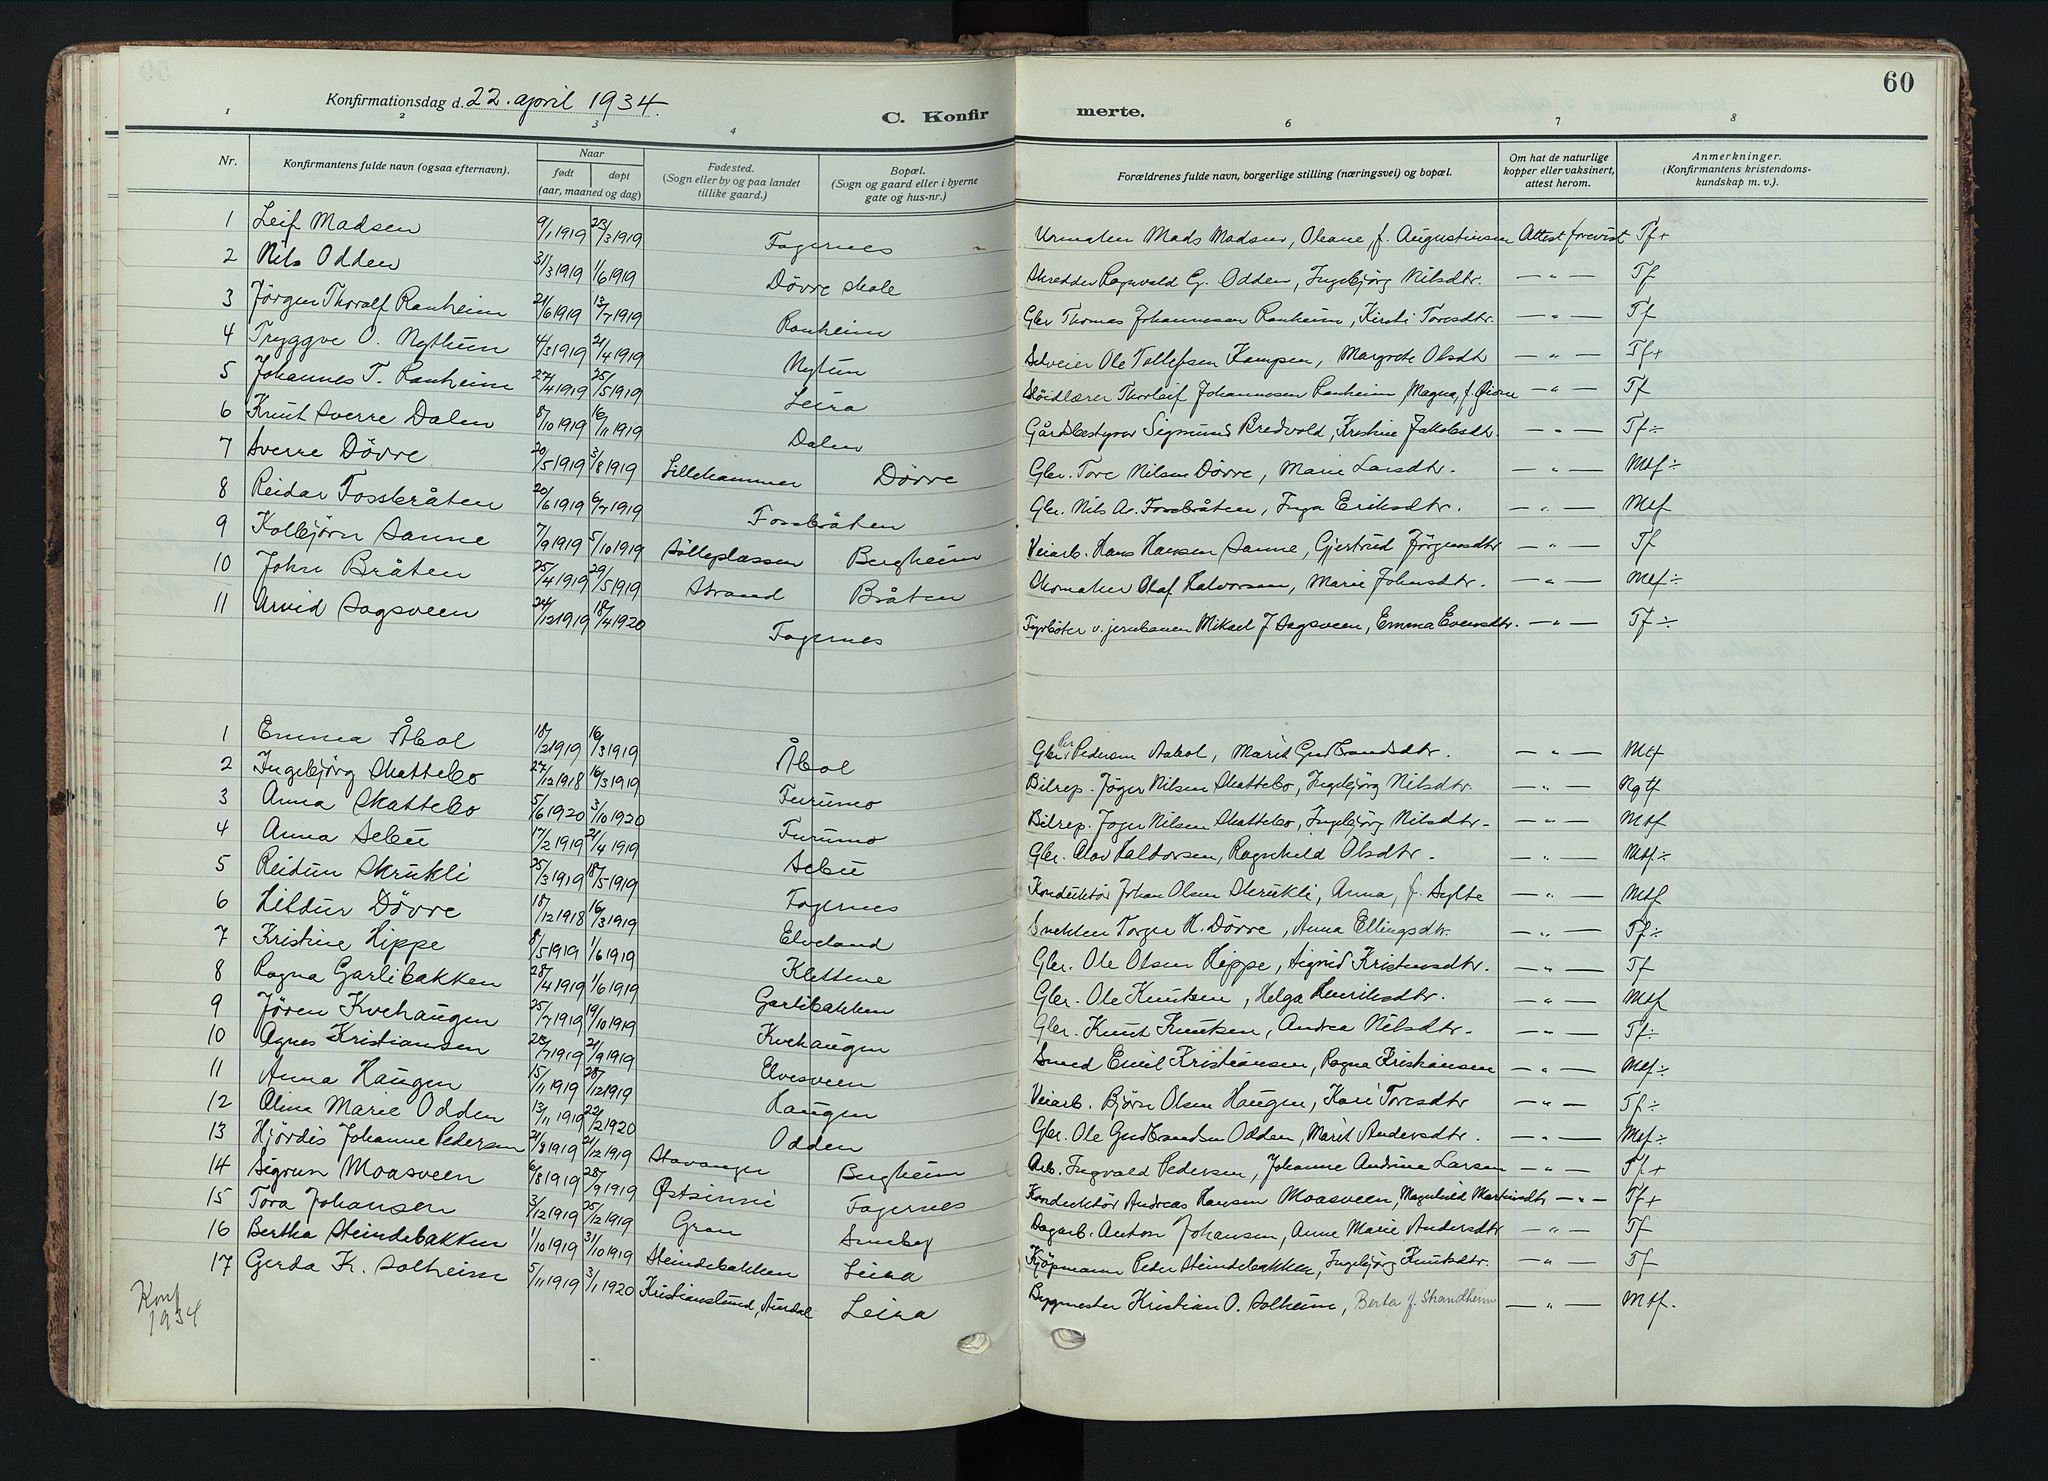 60
Konfirmationsdag d. 22. april 1934.
C. Konfirmerte.
1 2 3 4 6 7 8
Nr. Konfirmantens fulde navn (ogsaa efternavn). Naar født døpt (aar, maaned og dag) Fødested. (Sogn eller by og paa landet tillike gaard.) Bopæl. (Sogn og gaard eller i byerne gate og hus-nr.) Forældrenes fulde navn, borgerlige stilling (næringsvei) og bopæl. Om hat de naturlige kopper eller vaksinert, attest herom. Anmerkninger. (Konfirmantens kristendomskundskap m. v.).
1 Leif Madsen 9/1 1919 23/3 1919 Fagernes Urmaker Mads Madsen, Oleane, f. Augustinsen Attest forevist Tf+
2 Nils Odden 31/3 1919 1/6 1919 Døvre skole Skredder Ragnvald G. Odden, Ingebjørg Nilsdtr. — " — Tf
3 Jørgen Thoralf Ranheim 21/6 1919 13/7 1919 Ranheim Gbr Thomas Johannesen Ranheim, Kirsti Toresdtr. — " — Tf
4 Tryggve O. Nythun 4/3 1919 21/4 1919 Nytun Selveier Ole Tollefsen Kampen, Margrete Olsdtr — " — Tf+
5 Johannes T. Ranheim 27/4 1919 25/5 1919 Leira Sløidlærer Thorleif Johannesen Ranheim, Magna, f. — " — Tf
6 Knut Sverre Dalen 8/10 1919 16/11 1919 Dalen Gårdsbestyrer Sigmund Bredvold, Kristine Jakobsdtr. — " — Tf÷
7 Sverre Døvre 20/5 1919 3/8 1919 Lillehammer Døvre Gbr. Tore Nilsen Døvre, Marie Larsdtr. — " — Mtf÷
8 Reidar Fossbråten 20/6 1919 6/7 1919 Fossbråten Gbr. Nils Ar. Fossbråten, Inga Eriksdtr. — " — Mtf
9 Kolbjørn Sanne 7/9 1919 5/10 1919 Sølleplassen Bergheim Veiarb. Hans Hansen Sanne, Gjertrud Jørgensdtr — " — Tf
10 John Bråten 25/4 1919 29/5 1919 Strand Bråten Skomaker Olaf Halvorsen, Marie Johnsdtr. — " — Mtf÷
11 Arvid Sagsveen 24/12 1919 18/4 1920 Fagernes Fyrbøter v. jernbanen Mikael J Sagsveen, Emma Evensdtr. — " — Tf÷
1 Emma Åbol 18/2 1919 16/3 1919 Åbol Gbr Per Pedersen Aabol, Marit Gudbrandsdtr. — " — Mtf
2 Ingebjørg Skattebo 27/12 1918 16/3 1919 Furumo Bilrep. Jøger Nilsen Skattebo, Ingebjørg Nilsdtr. — " — Ngtf
3 Anna Skattebo 5/6 1920 3/10 1920 Furumo Bilrep. Jøger Nilsen Skattebo, Ingebjørg Nilsdtr. — " — Mtf
4 Anna Sebu 17/2 1919 21/4 1919 Sebu Gbr. Olav Haldorsen, Ragnhild Olsdtr. — " — Mtf÷
5 Reidun Skrukli 25/3 1919 18/5 1919 Fagernes Konduktør Johan Olsen Skrukli, Anna, f. Sylte — " — Mtf
6 Hildur Døvre 18/12 1918 16/3 1919 Elveland Snekker Torger H. Døvre, Anna Ellingsdtr. — " — Tf÷
7 Kristine Hippe 8/5 1919 1/6 1919 Klettene Gbr. Ole Olsen Hippe, Sigrid Kristensdtr. — " — Tf
8 Ragna Garlibakken 28/4 1919 1/6 1919 Garlibakken Gbr. Ole Knutsen, Helga Henriksdtr. — " — Mtf
9 Jøren Kvehaugen 25/7 1919 19/10 1919 Kvehaugen Gbr. Knut Knutsen, Andrea Nilsdtr. — " — Tf÷
10 Agnes Kristiansen 28/7 1919 21/9 1919 Elvesveen Smed Emil Kristiansen, Ragna Kristiansen — " — Mtf÷
11 Anna Haugen 15/11 1919 28/12 1919 Haugen Veiarb. Bjørn Olsen Haugen, Kari Toresdtr — " — Tf÷
12 Olina Marie Odden 13/11 1919 22/2 1920 Odden Gbr. Ole Gudbrandsen Odden, Marit Andersdtr. — " — Mtf÷
13 Hjördis Johanne Pedersen 21/8 1919 21/12 1919 Stavanger Bergheim Arb. Ingvald Pedersen, Johanne Andrine Larsen — " — Tf+
14 Sigrun Moasveen 6/8 1919 28/9 1919 Østsinni Fagernes Konduktør Andreas Hansen Moasveen, Magnhild Martinsdtr — " — Tf+
15 Tora Johansen 3/12 1919 25/12 1919 Gran Smeby Dagarb. Anton Johansen, Anne Marie Andersdtr — " — Tf
16 Bertha Steindebakken 1/10 1919 31/10 1919 Steindebakken Leira Kjøpmann Peder Steindebakken, Ingebjørg Knutsdtr. — " — Tf
17 Gerda K. Solheim 5/11 1919 3/1 1920 Kristianslund, Aurdal Leira Bygmester Kristian O. Solheim, Berta f. Strandheim — " — Mtf.
Konf
1934